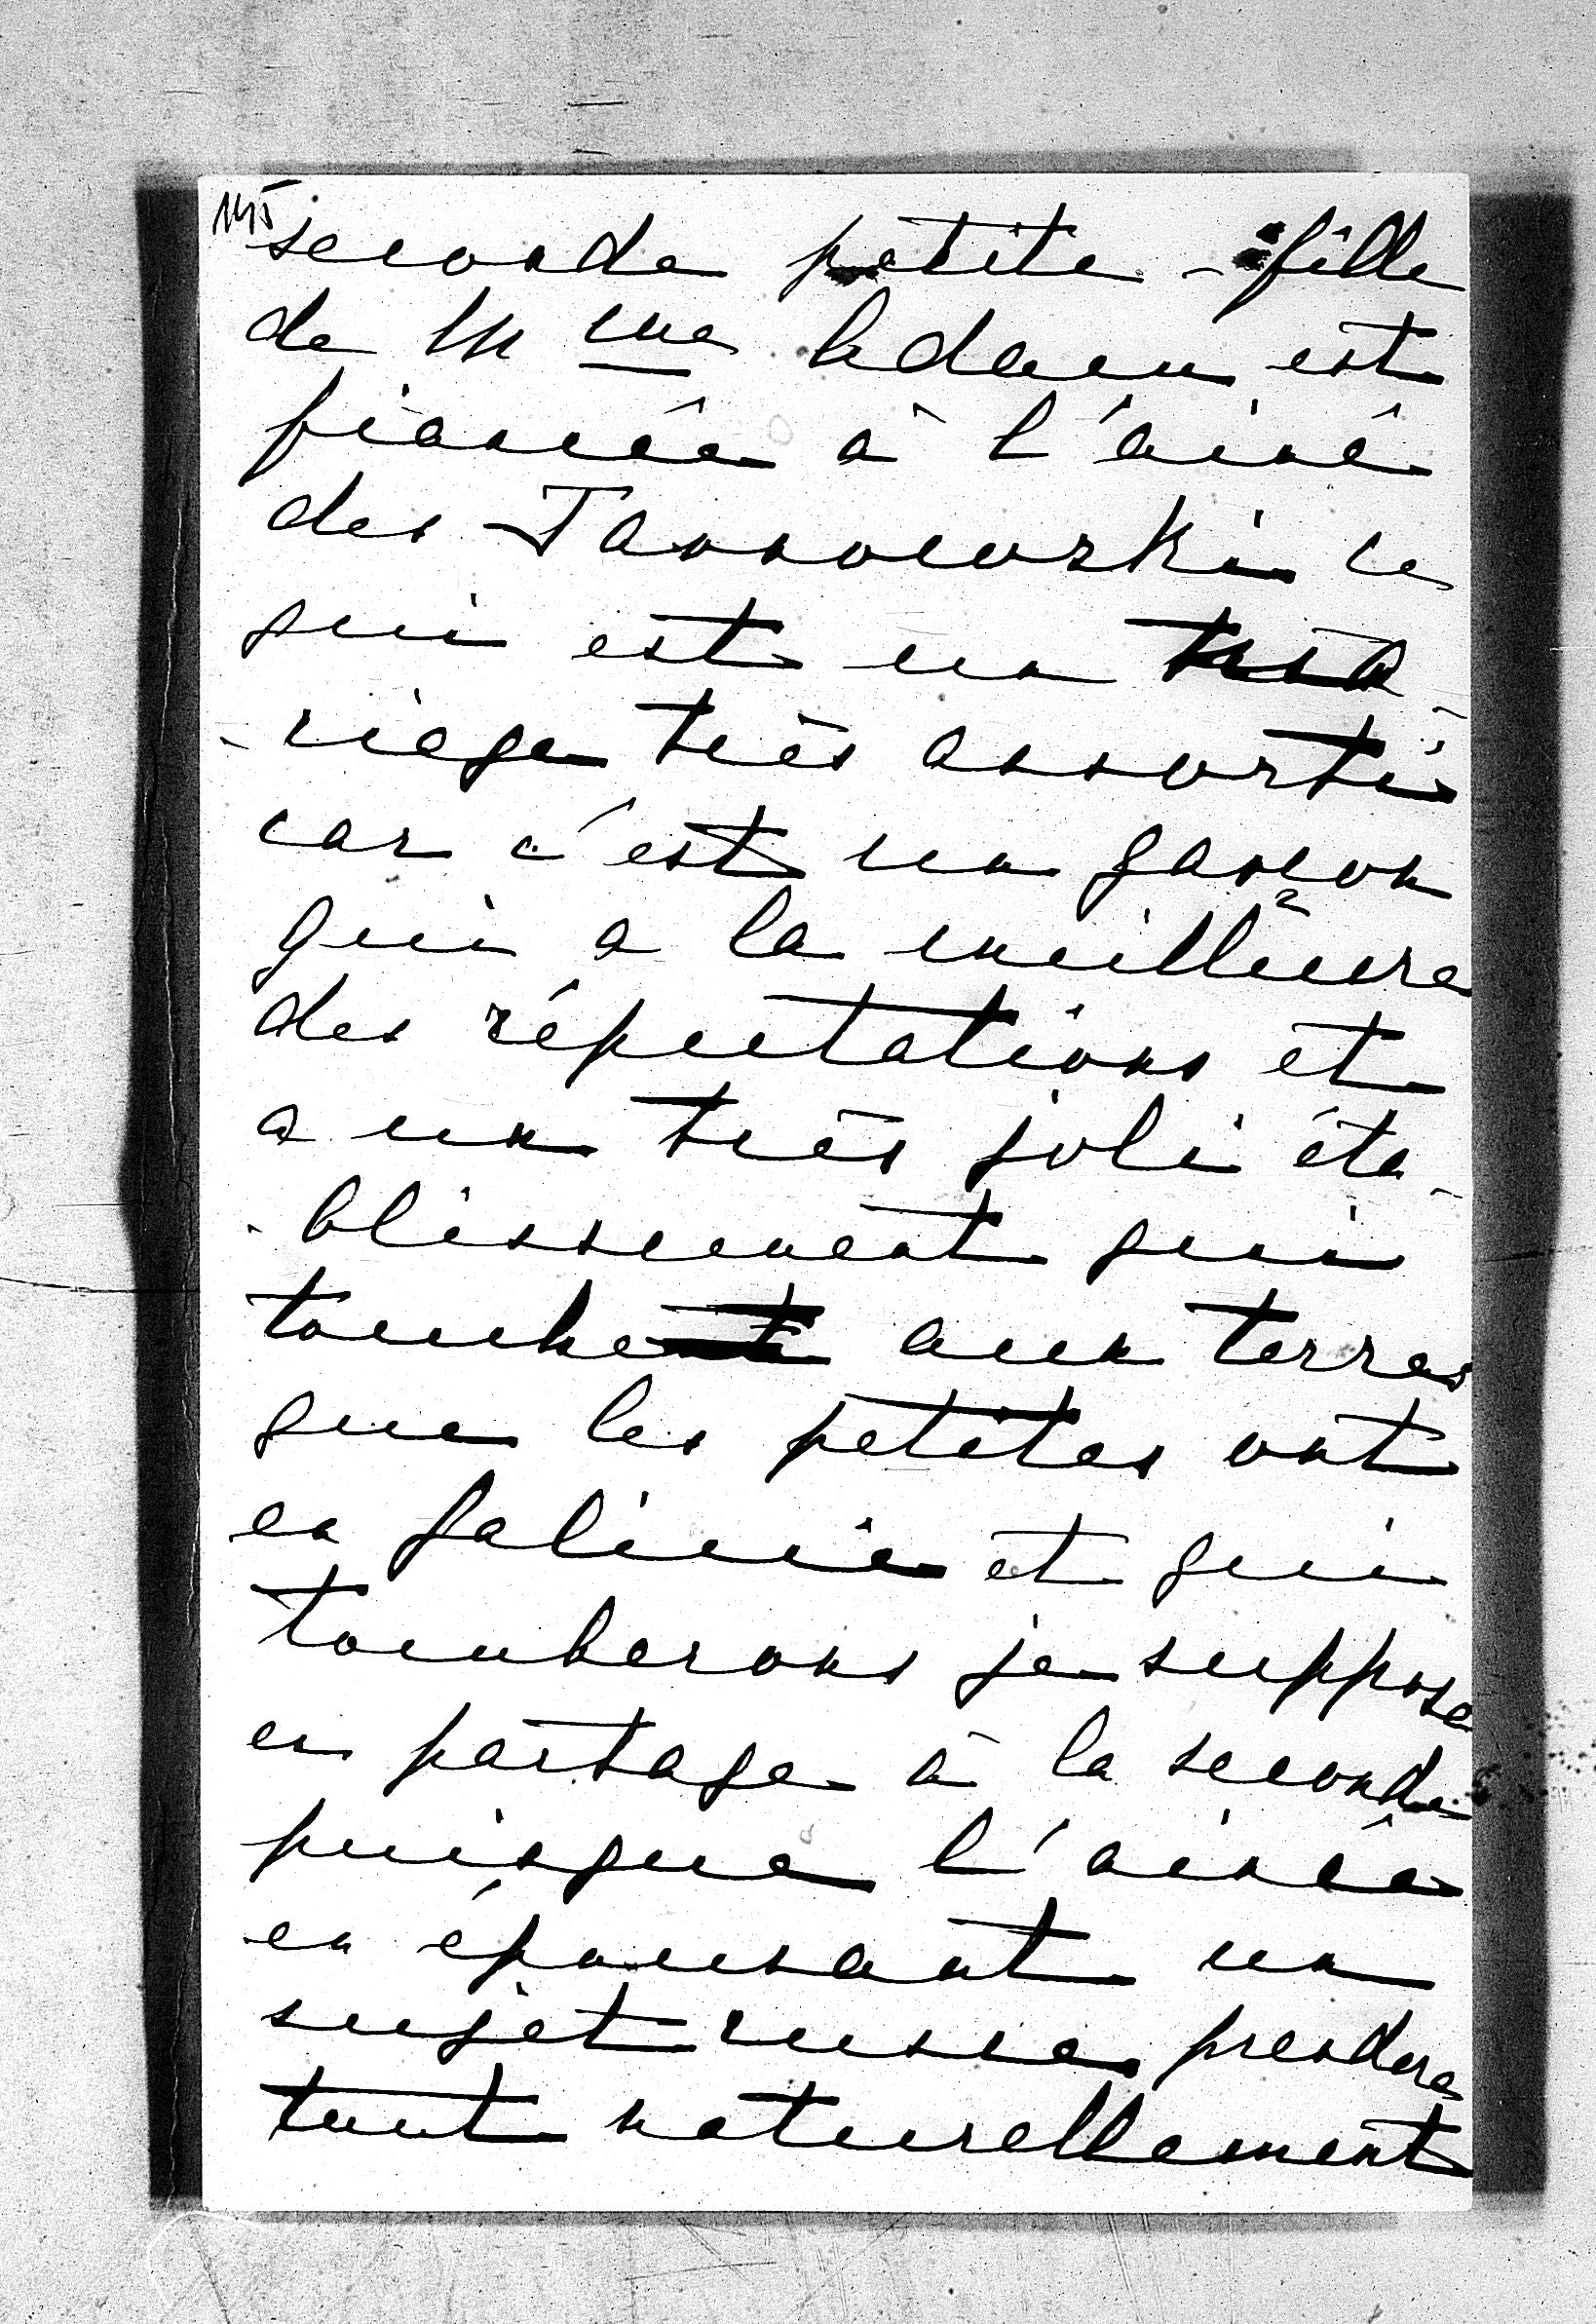 145
seconde petite-fille
de Mme Adam est
fiancée à l'ainé
des Tarnowski ce
qui est un ma-
-riage très assorti
car c'est un garçon
qui a la meilleure
des réputations et
a un très joli éta-
-blissement qui
touche aux terres
que les petites ont
en Galicie et qui
tomberons je suppose
en partage à la seconde
puisque l'ainée
en épousant un
sujet russe prendra
tout naturellement